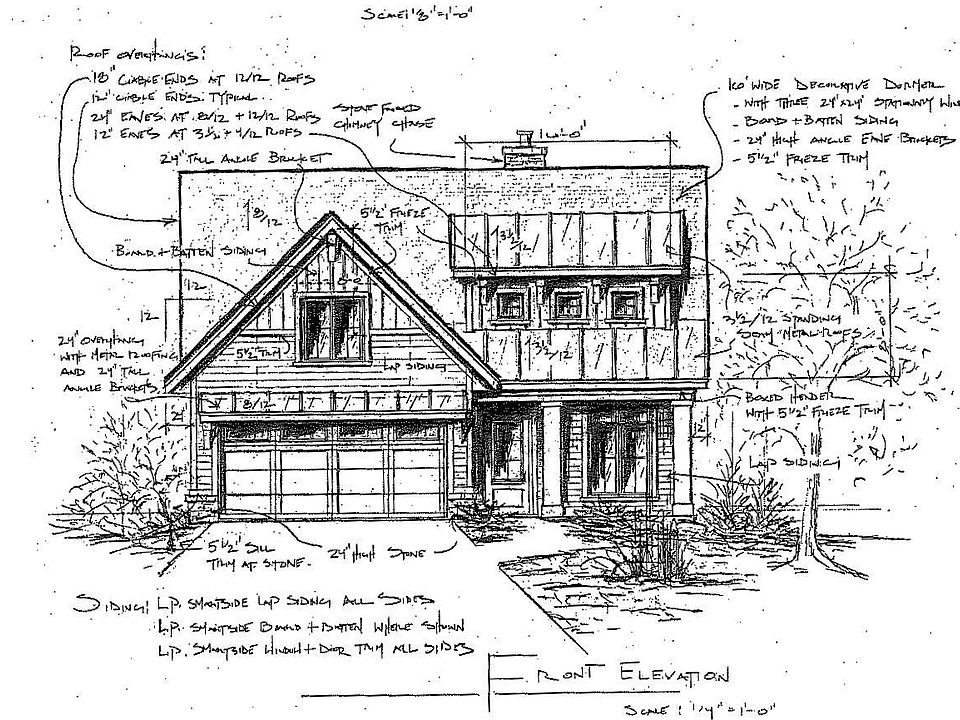 SCALE: 1/8" = 1'-0"
ROOF OVERHANGS:
18" GABLE ENDS AT 12/12 ROOFS
12" GABLE ENDS TYPICAL
24" EAVES AT 8/12 + 12/12 ROOFS
12" EAVES AT 3 1/2 + 4/12 ROOFS
STONE FACED
CHIMNEY CHASE
24" TALL ANGLE BRACKET
16'-0"
16' WIDE DECORATIVE DORMER
- WITH THREE 24"x24" STATIONARY WIN
- BOARD + BATTEN SIDING
- 24" HIGH ANGLE EAVE BRACKETS
- 5 1/2" FREEZE TRIM
8/12
5 1/2" FREEZE
TRIM
3 1/2/12
BOARD + BATTEN SIDING
12
12
24" OVERHANG
WITH METAL ROOFING
AND 24" TALL
ANGLE BRACKETS
5 1/2" TRIM
LAP SIDING
3 1/2/12
3 1/2/12 STANDING
SEAM METAL ROOFS
8/12
24"
BOXED HEADER
WITH 5 1/2" FREEZE TRIM
12"
LAP SIDING
5 1/2" SILL
TRIM AT STONE.
24" HIGH STONE
SIDING: L.P. SMARTSIDE LAP SIDING ALL SIDES
L.P. SMARTSIDE BOARD + BATTEN WHERE SHOWN
L.P. SMARTSIDE WINDOW + DOOR TRIM ALL SIDES
FRONT ELEVATION
SCALE: 1/4" = 1'-0"